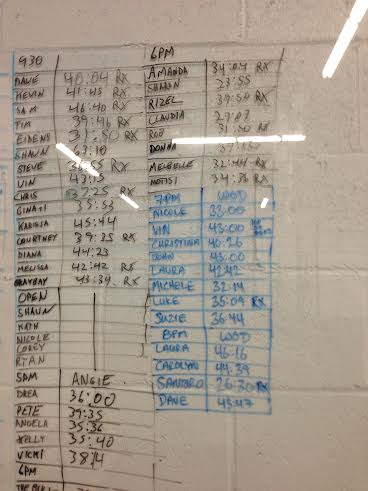 930
DAVE 40:04 RX
KEVIN 41:45 RX
SAM 46:40 RX
TIM 39:46 RX
31:50 RX
SHAUN 67:10
STEVE 36:55 RX
VIN
CHRIS 37:25 RX
35:53
45:44
COURTNEY 39:35 RX
DIANA 44:23
MELISSA 42:42 RX
43:34 RX
OPEN
SHAUN
KATH
NICOLE
COREY
RYAN
5PM ANGIE
DREA 36:00
PETE 39:35
ANGELA 35:36
KELLY 35:40
VICKI 38:14
6PM
6PM
AMANDA 34:04 RX
SHARON 23:55
RIZEL 39:50 RX
CLAUDIA 27:07
ROB 31:50 RX
DONNA
MELBELLE 32:44 RX
34:36 RX
7PM WOD
NICOLE 33:00
VIN 43:00
CHRISTINA 40:26
JOHN 43:00
LAURA 42:42
MICHELE 32:14
LUKE 35:09 RX
SUZIE 36:44
8PM WOD
LAURA 46:16
CAROLYN 44:39
SANTORO 26:30 RX
DAVE 43:47